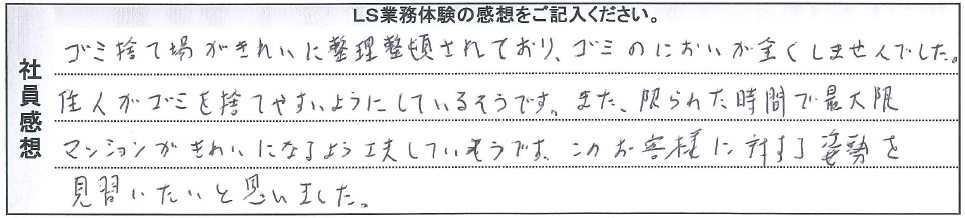 LS業務体験の感想をご記入ください。
社員感想
ゴミ捨て場がきれいに整理整頓されており、ゴミのにおいが全くしませんでした。
住人がゴミを捨てやすいようにしているそうです。また、限られた時間で最大限
マンションがきれいになるよう工夫しているそうです。このお客様に対する姿勢を
見習いたいと思いました。